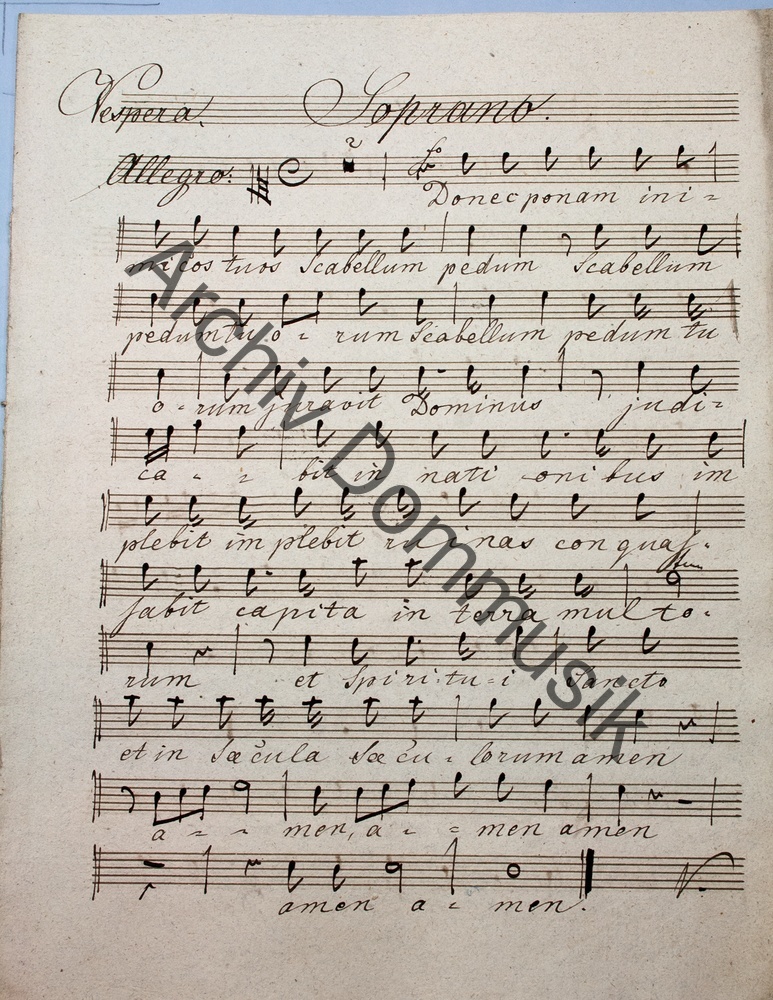 Vespera. Soprano.
Allegro:
2
Donec ponam ini =
micos tuos Scabellum pedum Scabellum
pedum tu o = rum Scabellum pedum tu
o = rum juravit Dominus judi =
ca = = bit in nati onibus im
plebit implebit ruinas conquas =
sabit capita in terra multo =
rum et Spiri = tu = i Sancto
et in Sæcula Sæcu = lorum amen
a = = men, a = = men amen
amen a = men.
Archiv Dommusik